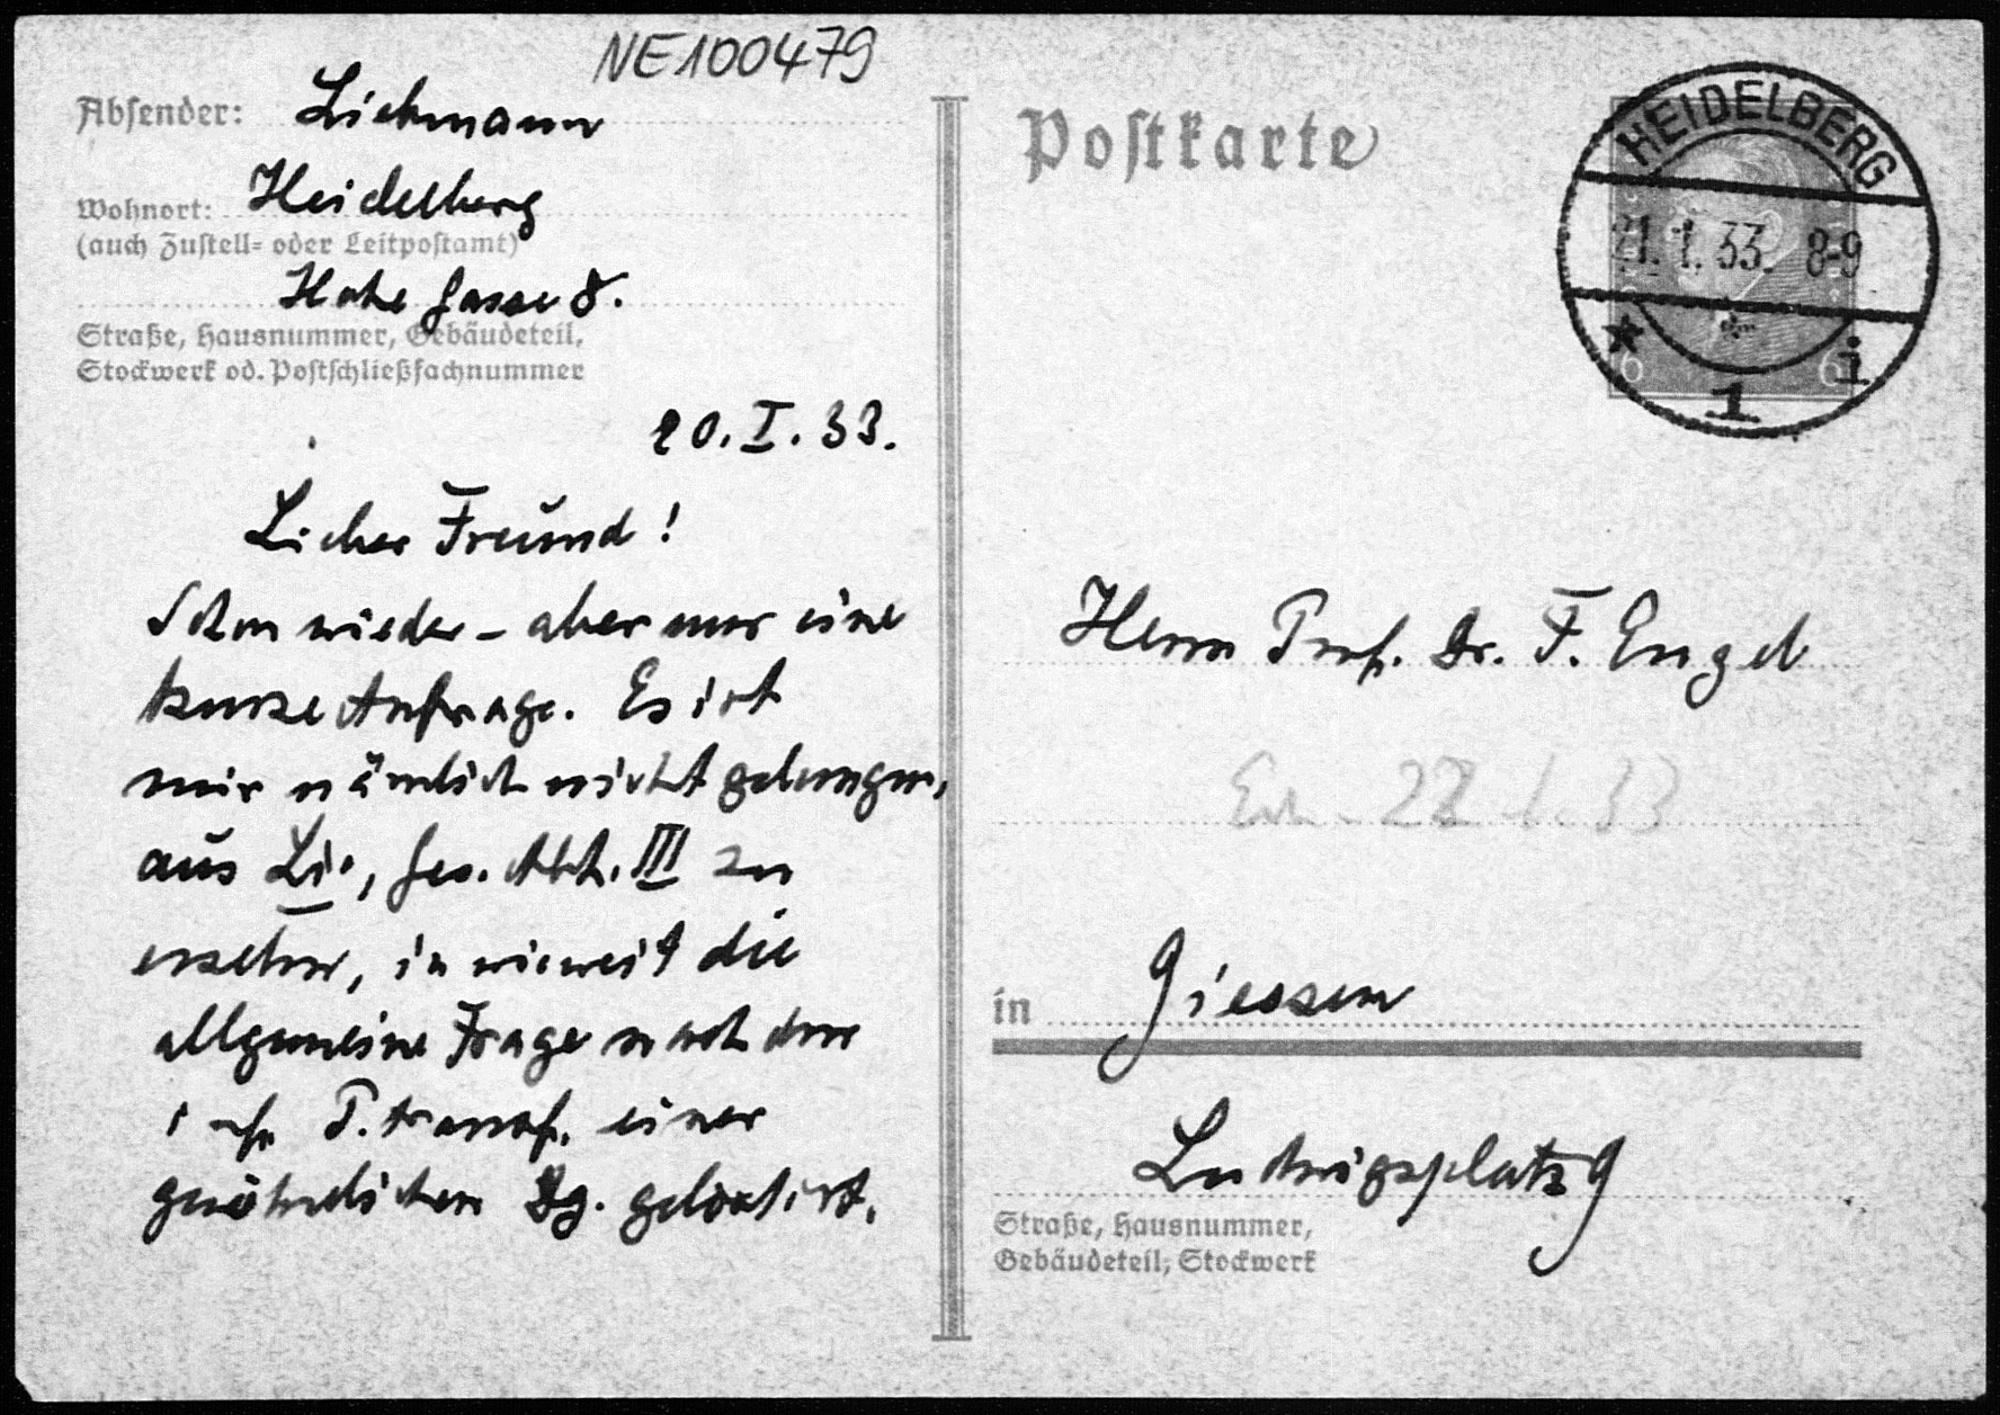 NE100479
Absender: Liebmann
Wohnort: Heidelberg
(auch Zustell- oder Leitpostamt)
Hohe Gasse 8.
Straße, Hausnummer, Gebäudeteil,
Stockwerk od. Postschließfachnummer
20. I. 33.
Lieber Freund!
Schon wieder – aber nur eine
kurze Anfrage. Es ist
mir nämlich nicht gelungen,
aus Lie, Ges. Abh. III zu
ersehen, inwieweit die
allgemeine Frage nach den
inf. P. transf. einer
gewöhnlichen Dg. gelöst ist.
Postkarte
HEIDELBERG
21. 1. 33. 8-9
1 i
6 6
Herrn Prof. Dr. F. Engel
22 1. 33
in Giessen
Ludwigsplatz 9
Straße, Hausnummer,
Gebäudeteil, Stockwerk